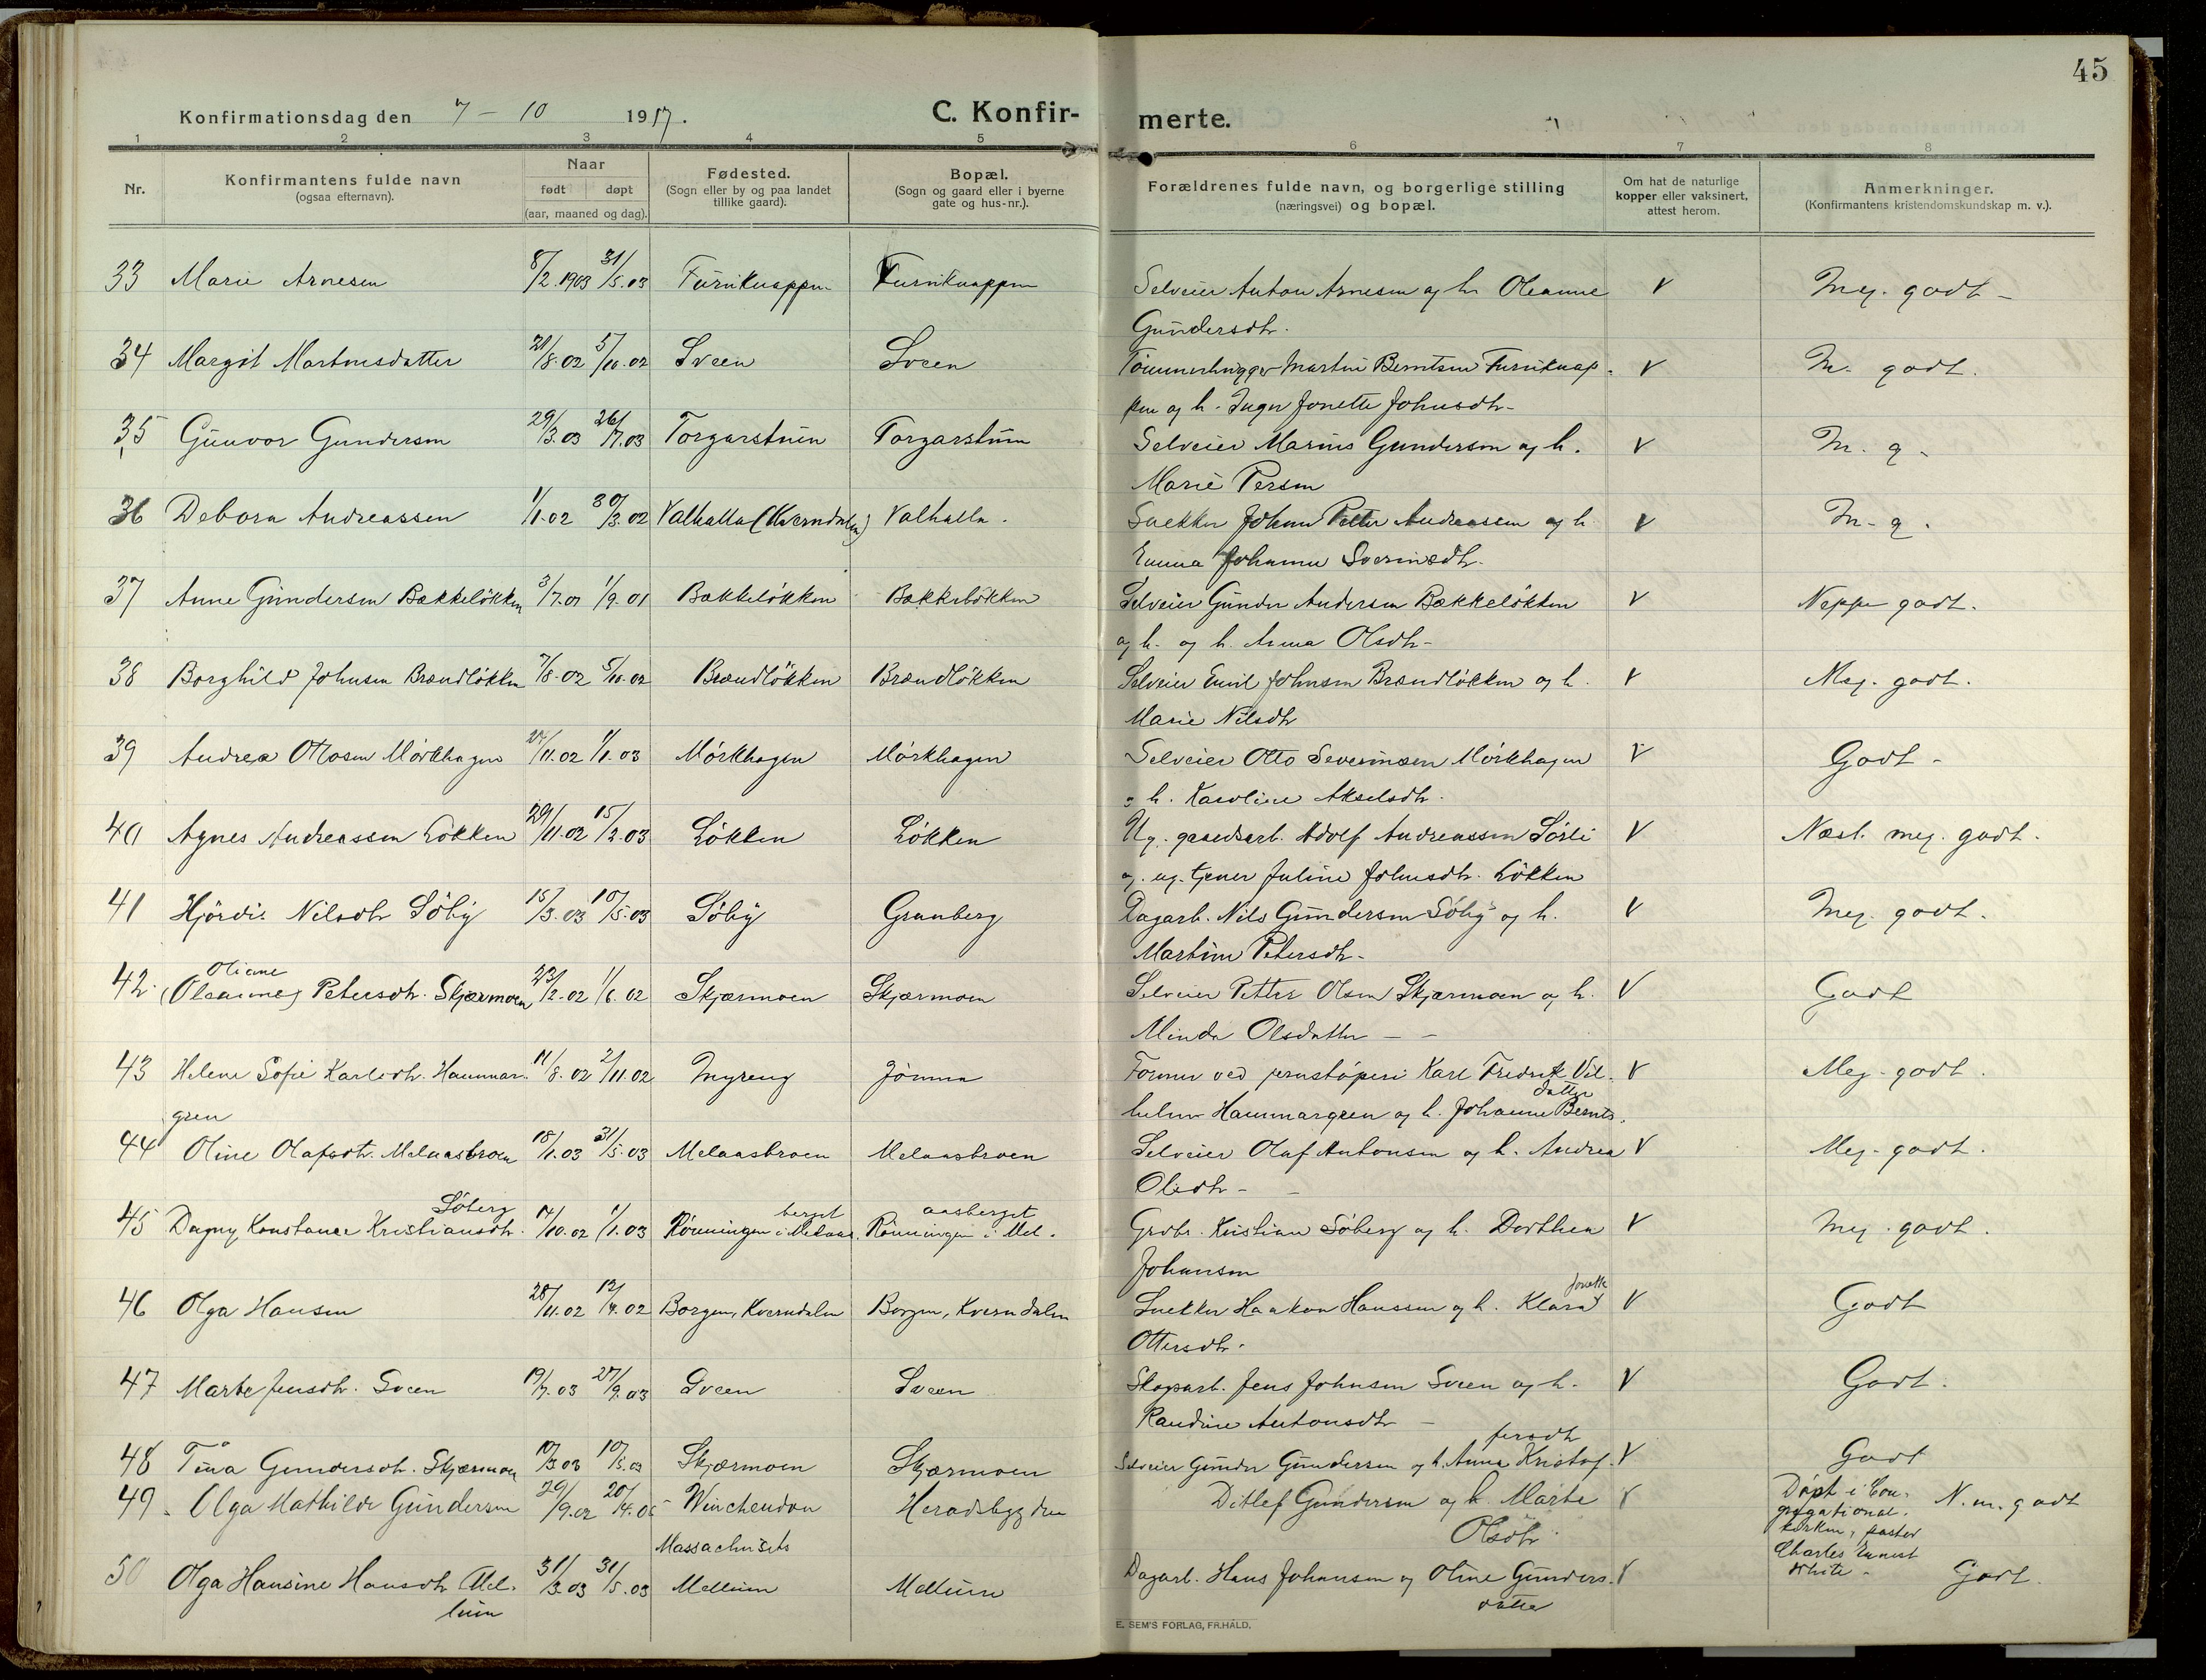 45
Konfirmationsdag den 7 - 10 1917. C. Konfir- merte.
1 2 3 4 5 6 7 8
Nr. Konfirmantens fulde navn (ogsaa efternavn). Naar født døpt (aar, maaned og dag). Fødested. (Sogn eller by og paa landet tillike gaard). Bopæl. (Sogn og gaard eller i byerne gate og hus-nr.). Forældrenes fulde navn, og borgerlige stilling (næringsvei) og bopæl. Om hat de naturlige kopper eller vaksinert, attest herom. Anmerkninger. (Konfirmantens kristendomskundskap m. v.).
33 Marie Arnesen 8/2.1903 31/5.03 Furuknappen Furuknappen Selveier Anton Arnesen og h. Oleanne V Meg. godt -
Gundersdtr.
34 Margit Martinsdatter 21/8.02 5/10.02 Sveen Sveen Tømmerhugger Martin Berntsen Furuknap- V M. godt.
pen og h. Inger Jonette Johnsdtr -
35 Gunvor Gundersen 29/3.03 26/7.03 Torgarstuen Torgarstuen Selveier Marius Gundersen og h. V M. g.
Marie Persen
36 Debora Andreassen 1/1.02 30/3.02 Valhalla (Kverndalen) Valhalla. Snekker Johan Petter Andreassen og h. V M. g.
Emma Johanne Sverinsdtr.
37 Anne Gundersen Bækkeløkken 3/7.01 1/9.01 Bækkeløkken Bækkeløkken Selveier Gunder Andersen Bækkeløkken V Neppe godt.
og h. og h. Anna Olsdtr -
38 Borghild Johnsen Brændløkken 7/8.02 5/10.02 Brændløkken Brændløkken Selveier Emil Johnsen Brændløkken og h. V Meg. godt.
Marie Nilsdtr
39 Andrea Ottosen Mørkhagen 27/11.02 1/1.03 Mørkhagen Mørkhagen Selveier Otto Severinsen Mørkhagen V Godt -
og h. Karoline Akselsdtr.
40 Agnes Andreassen Løkken 29/11.02 15/2.03 Løkken Løkken Ug. gaardsarb. Adolf Andreassen Sørli V Næst. meg. godt.
og ug. tjener Juline Johnsdtr. Løkken
41 Hjørdis Nilsdtr Søby 15/3.03 10/5.03 Søby Granberg Dagarb. Nils Gundersen Søby og h. V Meg. godt.
Martine Petersdtr -
42. Oliane (Oleanne) Petersdtr. Skjærmoen 23/2.02 1/6.02 Skjærmoen Skjærmoen Selveier Petter Olsen Skjærmoen og h. V Godt
Minda Olsdatter - -
43 Helene Sofie Karlsdtr. Hammar- 11/8.02 2/11.02 Myreng Jømna Former ved jernstøperi Karl Fredrik Vil- V Meg. godt.
gren helm Hammargren og h. Johanne Bernts- datter
44 Oline Olafsdtr. Melaasbroen 18/1.03 31/5.03 Melaasbroen Melaasbroen Selveier Olaf Antonsen og h. Andrea V Meg. godt.
Olsdtr - -
45 Dagny Konstance Kristiansdtr. Søberg 17/10.02 1/1.03 Rønningen i Melaas- berget Rønningen i Mel- aasberget Grobr. Kristian Søberg og h. Dorthea V Meg. godt.
Johansen
46 Olga Hansen 28/11.02 12/4.02 Borgen, Kverndalen Borgen, Kverndalen Snekker Haakon Hanssen og h. Klara Jonette V Godt
Ottersdtr.
47 Marte Jensdtr. Sveen 19/7.03 27/9.03 Sveen Sveen Skogsarb. Jens Johnsen Sveen og h. V Godt.
Randine Antonsdtr -
48 Tina Gundersdtr. Skjærmoen 10/3.03 10/5.03 Skjærmoen Skjærmoen Selveier Gunder Gundersen og h. Anna Kristof- fersdtr V Godt
49 Olga Mathilde Gundersen 29/9.02 20/4.05 Winchendon Heradsbygden Ditlef Gundersen og h. Marte V Døpt i Con- N. m. godt
Massachusets Olsdtr. gregational- kirken, pastor Charles Ernest White.
50 Olga Hansine Hansdtr Mel- 31/3.03 31/5.03 Mellum Mellum Dagarb. Hans Johansen og Oline Gunders- V Godt.
lum datter
E. SEM'S FORLAG, FR.HALD.